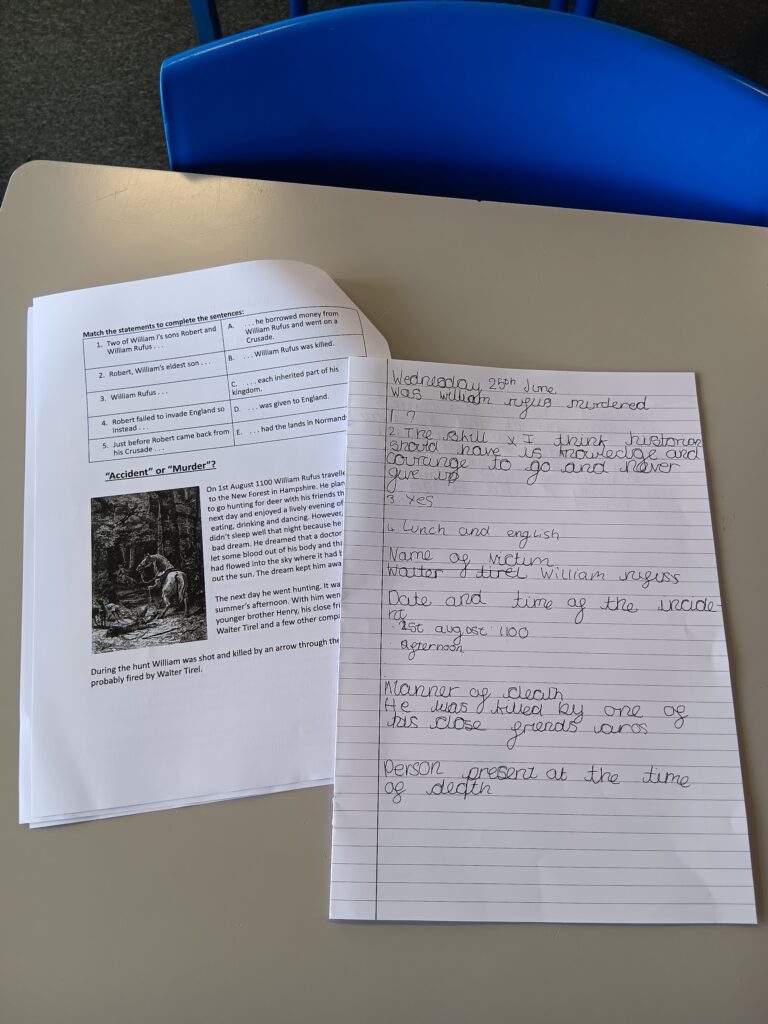 Match the statements to complete the sentences:
1. Two of William I's sons Robert and
William Rufus . . .
A. . . . he borrowed money from
William Rufus and went on a
Crusade.
2. Robert, William's eldest son . . .
B. . . . William Rufus was killed.
3. William Rufus . . .
C. . . . each inherited part of his
kingdom.
4. Robert failed to invade England so
instead . . .
D. . . . was given to England.
5. Just before Robert came back from
his Crusade . . .
E. . . . had the lands in Normandy
"Accident" or "Murder"?
On 1st August 1100 William Rufus travelle
to the New Forest in Hampshire. He plan
to go hunting for deer with his friends th
next day and enjoyed a lively evening of
eating, drinking and dancing. However,
didn't sleep well that night because he
bad dream. He dreamed that a doctor
let some blood out of his body and tha
had flowed into the sky where it had b
out the sun. The dream kept him awa
The next day he went hunting. It wa
summer's afternoon. With him wen
younger brother Henry, his close fri
Walter Tirel and a few other compa
During the hunt William was shot and killed by an arrow through the
probably fired by Walter Tirel.
Wednesday 25th June
Was William rufus murdered
1 ?
2 The skill I think historian
should have is knowledge and
courange to go and never
give up
3 Yes
4 Lunch and english
Name of victim
Walter tirel William rufuss
Date and time of the incide-
nt
1st august 1100
afternoon
Manner of death
He was killed by one of
his close friends aros
Person present at the time
of death